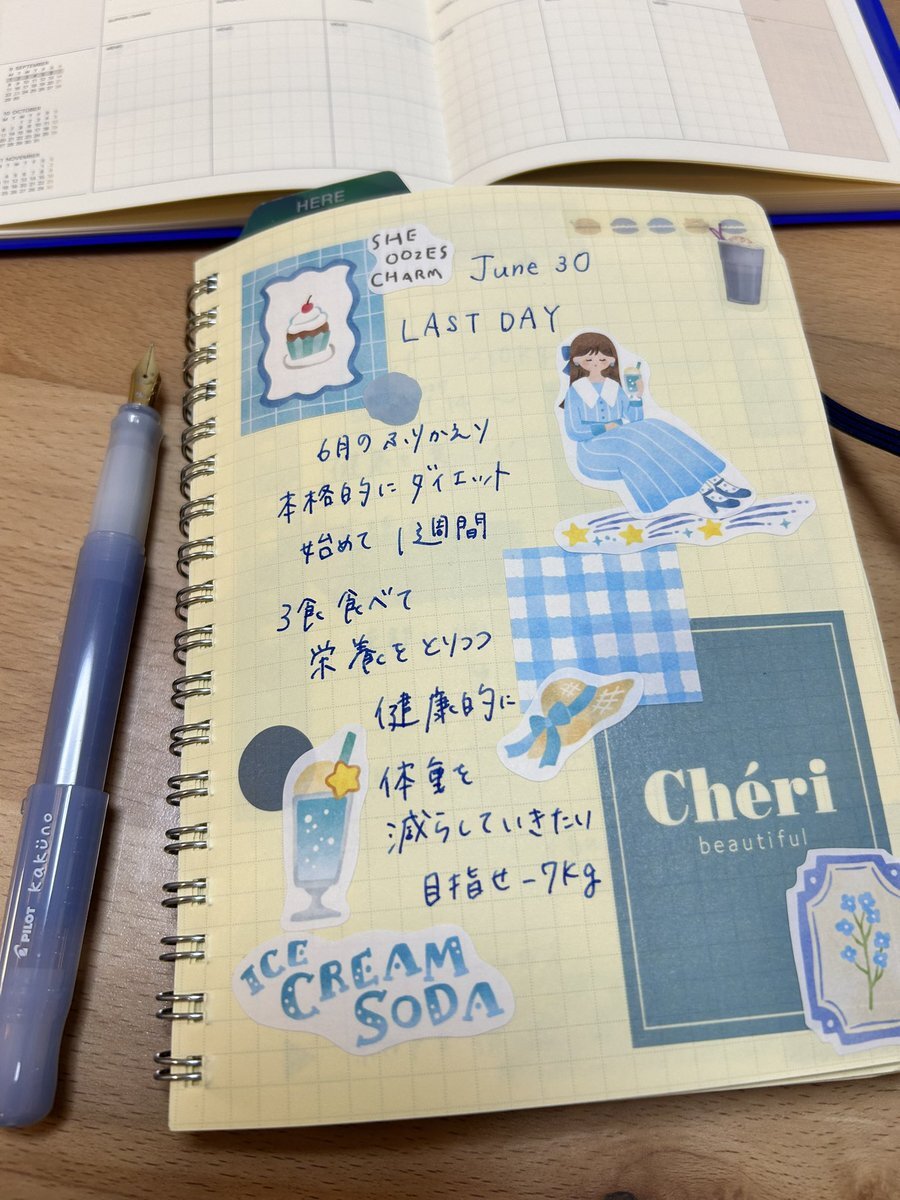 9 SEPTEMBER
10 OCTOBER
11 NOVEMBER
HERE
SHE
OOZES
CHARM
June 30
LAST DAY
6月のふりかえり
本格的にダイエット
始めて 1週間
3食食べて
栄養をとりつつ
健康的に
体重を
減らしていきたい
目指せ-7kg
Chéri
beautiful
ICE
CREAM
SODA
PILOT kaküno